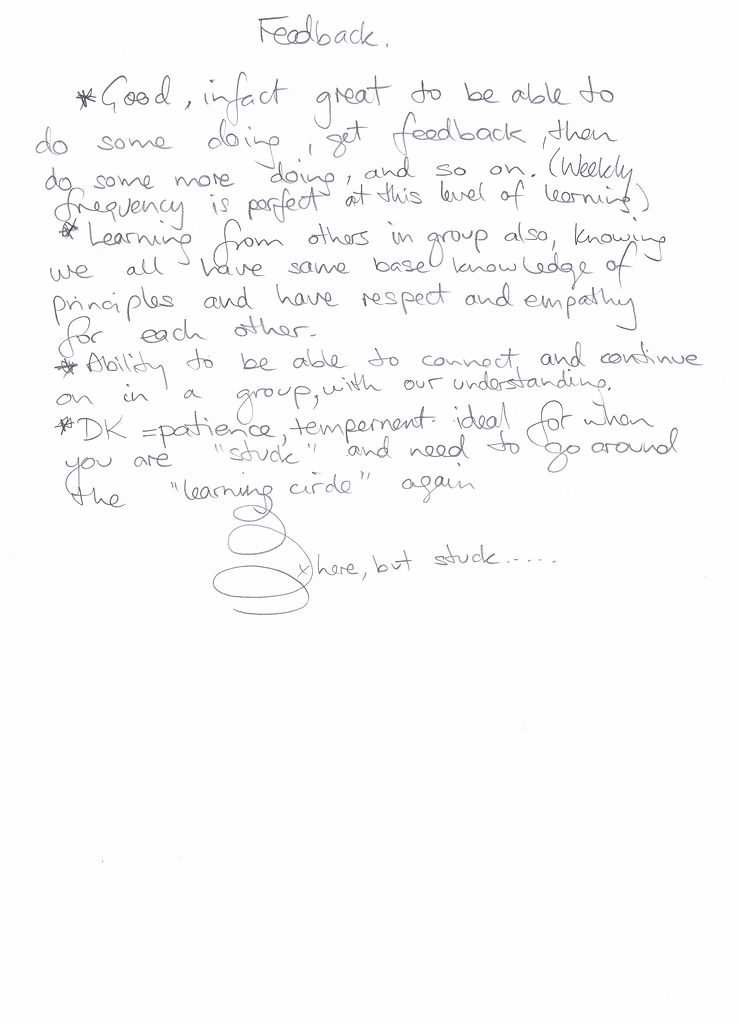 Feedback.
* Good, infact great to be able to
do some doing, get feedback, then
do some more doing, and so on. (Weekly
frequency is perfect at this level of learning)
* Learning from others in group also, knowing
we all have same base knowledge of
principles and have respect and empathy
for each other.
* Ability to be able to connect, and continue
on in a group, with our understanding.
* DK = patience, tempernent ideal for when
you are "stuck" and need to go around
the "learning circle" again
x here, but stuck.....